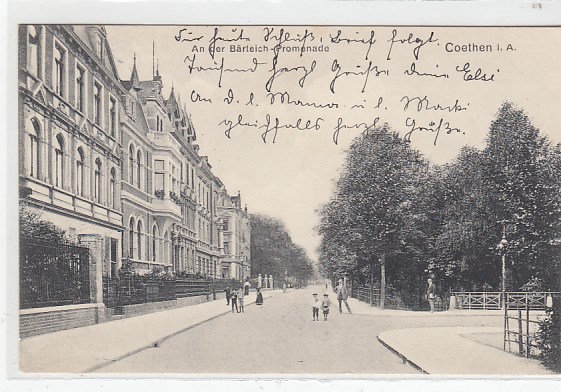 Für heute Schluß, Brief folgt.
An der Bärteich-Promenade
Coethen i. A.
Tausend herzl. Grüße deine Elsi
An d. l. Mama u. l.
gleichfalls herzl. Grüße.